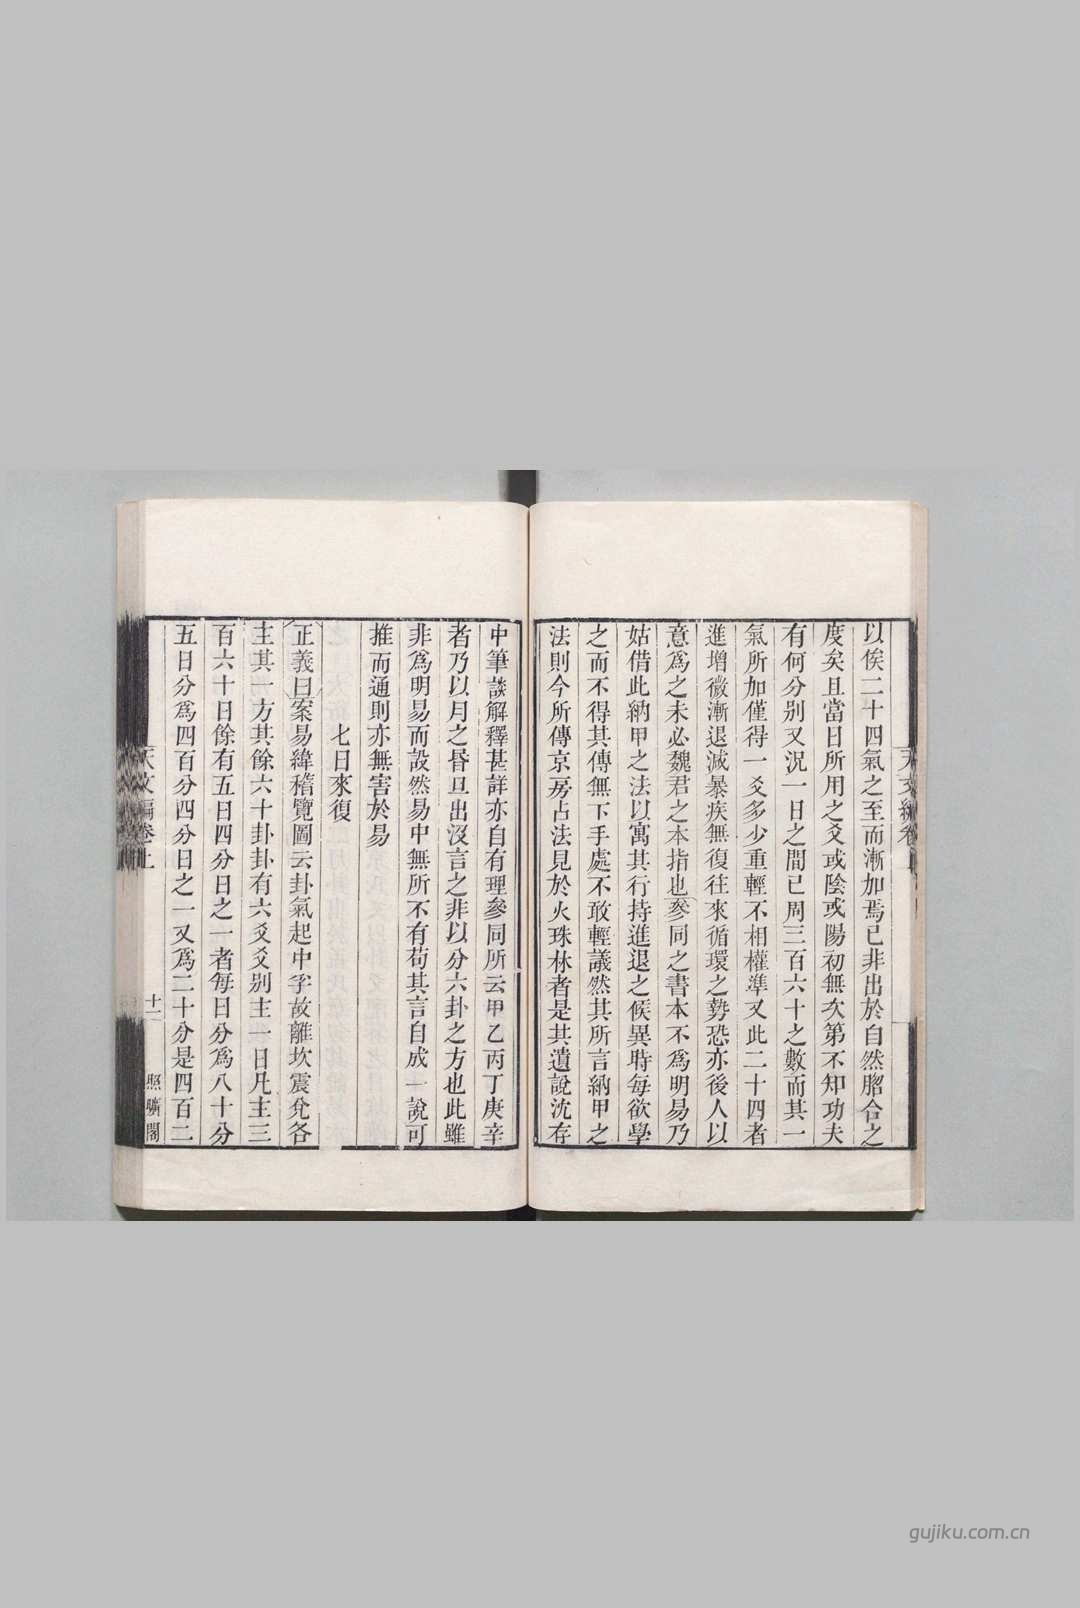 以俟二十四氣之至而漸加焉已非出於自然脗合之
度矣且當日所用之爻或陰或陽初無次第不知功夫
有何分别又況一日之間已周三百六十之數而其一
氣所加僅得一爻多少重輕不相權準又此二十四者
進增微漸退減暴疾無復往來循環之勢恐亦後人以
意爲之未必魏君之本指也參同之書本不爲明易乃
姑借此納甲之法以寓其行持進退之候異時每欲學
之而不得其傳無下手處不敢輕議然其所言納甲之
法則今所傳京房占法見於火珠林者是其遺說沈存
中筆談解釋甚詳亦自有理參同所云甲乙丙丁庚辛
者乃以月之昏旦出沒言之非以分六卦之方也此雖
非爲明易而設然易中無所不有苟其言自成一說可
推而通則亦無害於易
七日來復
正義曰案易緯稽覽圖云卦氣起中孚故離坎震兌各
主其一方其餘六十卦卦有六爻爻别主一日凡主三
百六十日餘有五日四分日之一者每日分爲八十分
五日分爲四百分四分日之一又爲二十分是四百二
天文編卷上
十一
照曠閣
gujiku.com.cn